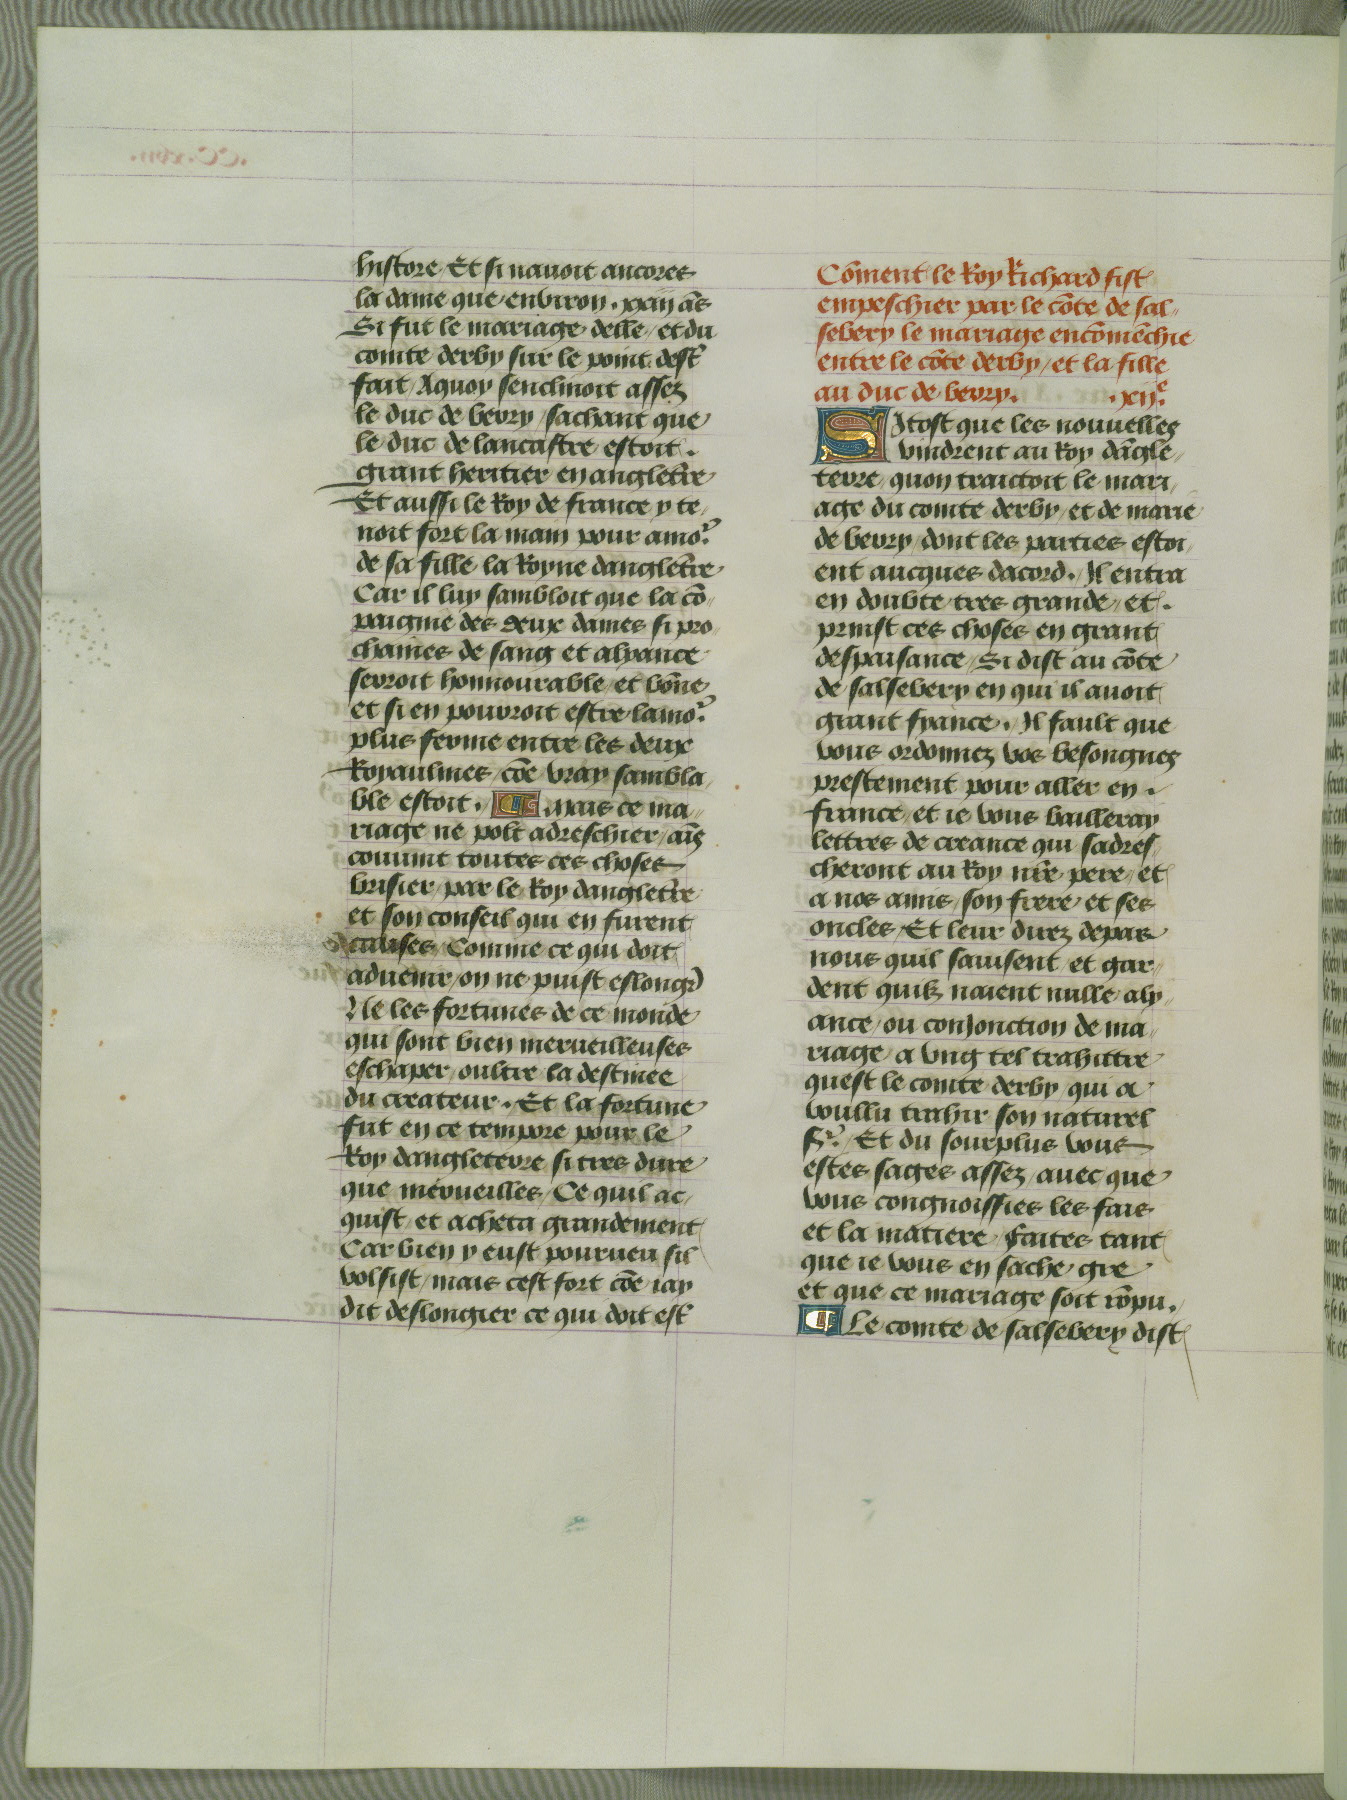 histore / Et si nauoit ancores
la dame que enuiron . xxiii ās
Si fut le mariage delle / et du
comte derby sur le point dest̄
fait / Aquoy senclinoit assez
le duc de berry / sachant que
le duc de lancastre estoit .
grant heritier en angletr̄e
Et aussi le Roy de france y te-
noit fort la main pour amor̄
de sa fille la Royne dangletr̄e
Car il luy sambloit que la cō-
paignie des deux dames si pro-
chaines de sang et alyance
seroit honnourable / et bōne
et si en pourroit estre lamor̄
plus ferme entre les deux
Royaulmes / cōe vray sambla-
ble estoit . ¶ . Mais ce ma-
riage ne polt adreschier / aīs
conuint toutes ces choses
brisier / par le Roy dangletr̄e
et son conseil qui en furent
causes / Comme ce qui doit
aduenir / on ne puist eslongr̄
Ne les fortunes de ce monde
qui sont bien merueilleuses
eschaper / oultre la destinee
du createur . Et la fortune
fut en ce tempore pour le
Roy dangleterre si tres dure
que merueilles / Ce quil ac-
quist / et acheta grandement
Car bien y eust pourueu sil
volsist / mais cest fort cōe iay
dit deslongier ce qui doit est̄
Cōment le Roy Richard fist
empeschier par le cōte de sal-
sebery le mariage encōmēchie
entre le cōte derby / et la fille
au duc de berry. . xiie.
SItost que les nouuelles
vindrent au Roy dāgle-
terre / quon traictoit le mari-
age du comte derby / et de marie
de berry / dont les parties estoi-
ent aucques dacord . Il entra
en doubte tres grande / et .
prinst ces choses en grant
desplaisance / Si dist au cōte
de salsebery en qui il auoit
grant fyance . Il fault que
vous ordonnez vos besongnes
prestement pour aller en .
france / et ie vous bailleray
lettres de creance qui sadres-
cheront au Roy nr̄e pere / et
a nos amis / son frere et ses
oncles / Et leur direz depar
nous quil sauisent et gar-
dent quilz naient nulle aly-
ance / ou conjonction de ma-
riage a vng tel trahittre
quest le comte derby / qui a
voullu trahir son naturel
sr̄ . Et du sourplus vous
estes sages assez / auec que
vous congnoissies les fais
et la matiere / faites tant
que ie vous en sache gre
et que ce mariage soit rōpu .
¶ Le comte de salsebery dist